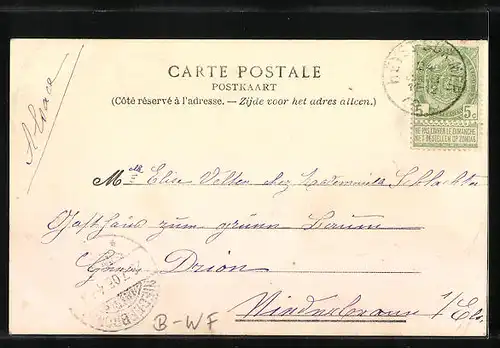 Alsace
CARTE POSTALE
POSTKAART
(Côté réservé à l'adresse. — Zijde voor het adres alleen.)
5c 5c
NE PAS LIVRER LE DIMANCHE
NIET BESTELLEN OP ZONDAG
Mlle Elise Velten chez Mademoiselle Schlachter
Gasthaus zum grünen Baum
Drion
Niederbronn i/Els.
B-WF